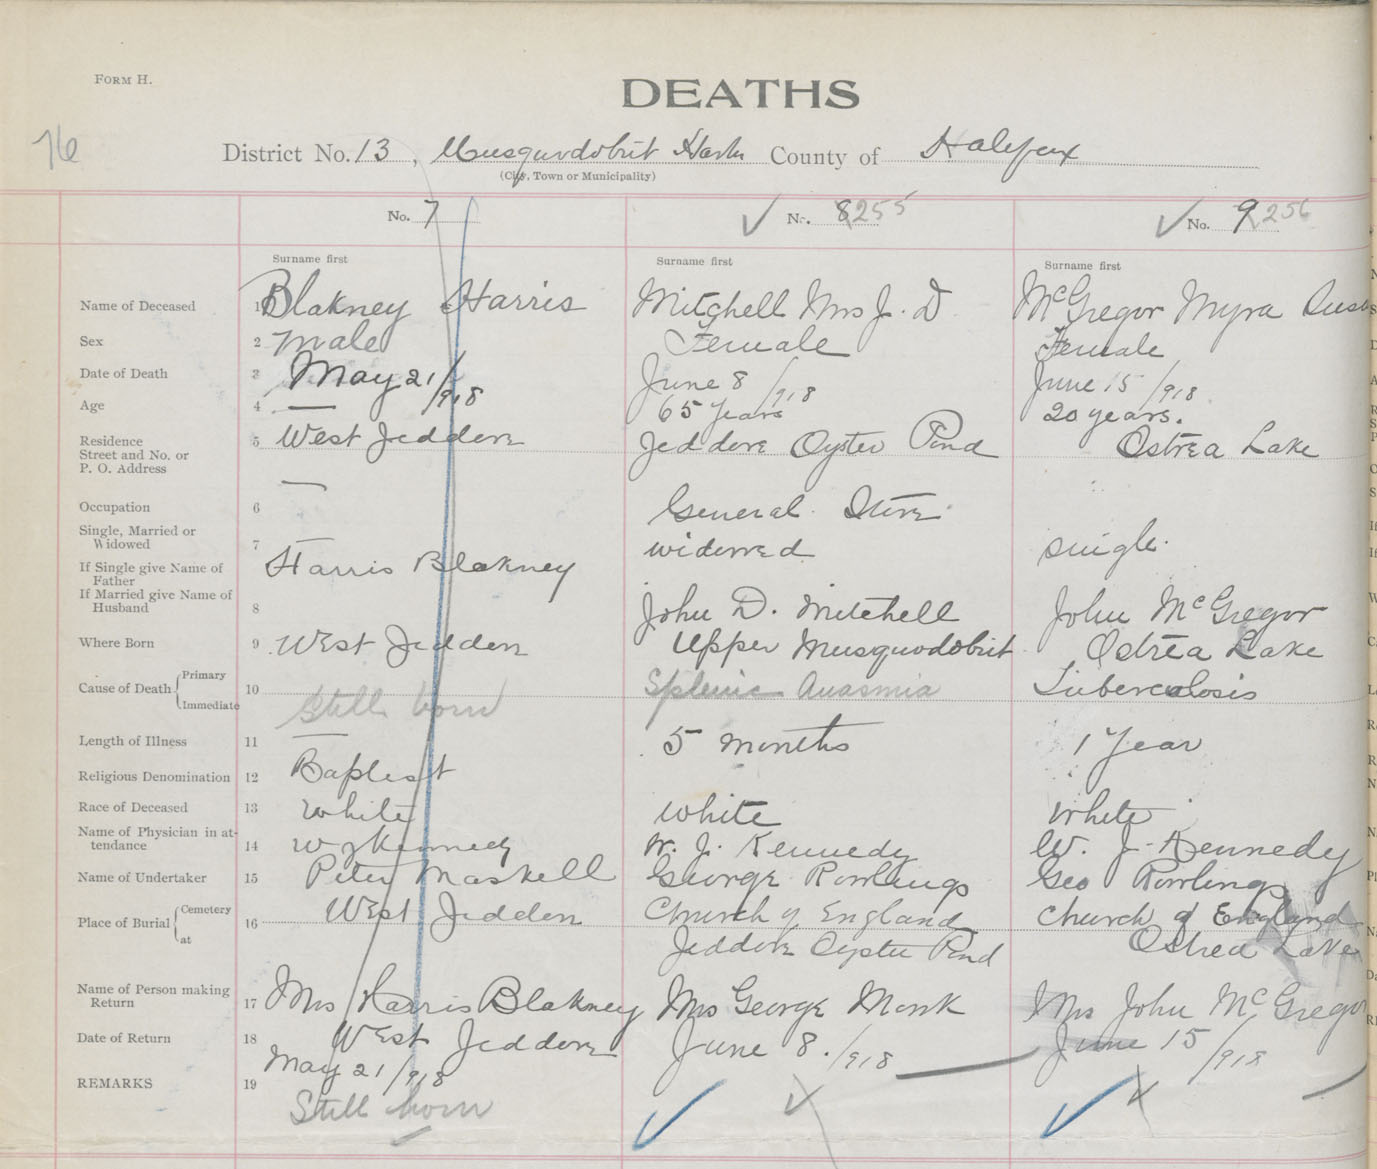 FORM H.
DEATHS
76
District No. 13, Musquodobit Harbr County of Halifax
(City, Town or Municipality)
No. 7
No. 8 255
No. 9 256
Surname first
Surname first
Surname first
Name of Deceased 1 Blakney Harris
Mitchell Mrs J. D
McGregor Myra
Sex 2 Male
Female
Female
Date of Death 3 May 21/918
June 8/918
June 15/918
Age 4 —
65 years
20 years.
Residence
Street and No. or
P. O. Address
5 West Jeddore
Jeddore Oyster Pond
Ostrea Lake
—
Occupation 6
General Store
Single, Married or
Widowed
7
widowed
single.
If Single give Name of
Father
Harris Blakney
If Married give Name of
Husband
8
John D. Mitchell
John McGregor
Where Born 9 West Jeddore
Upper Musquodobit
Ostrea Lake
Cause of Death { Primary
Immediate
10
Still born
Splenic Anasmia
Tuberculosis
Length of Illness 11 —
5 months
1 Year
Religious Denomination 12 Baptist
Race of Deceased 13 white
white
white
Name of Physician in at-
tendance
14 W J Kennedy
W. J. Kennedy
W. J. Kennedy
Name of Undertaker 15 Peter Maskell
George Rowlings
Geo Rowlings
Place of Burial { Cemetery
at
16 West Jeddore
Church of England
Jeddore Oyster Pond
Church of England
Ostrea Lake
Name of Person making
Return
17 Mrs Harris Blakney
West Jeddore
Mrs George Monk
Mrs John McGregor
Date of Return 18
May 21/918
June 8./918
June 15/918
REMARKS 19
Still born